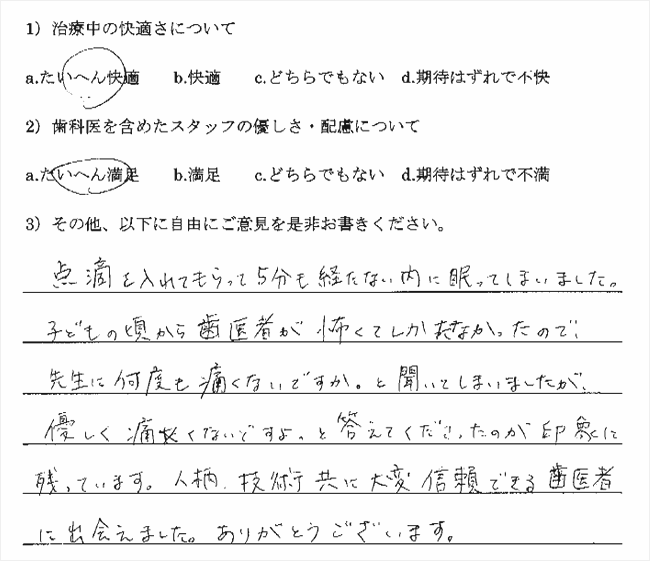 1）治療中の快適さについて
a.たいへん快適　b.快適　c.どちらでもない　d.期待はずれで不快
2）歯科医を含めたスタッフの優しさ・配慮について
a.たいへん満足　b.満足　c.どちらでもない　d.期待はずれで不満
3）その他、以下に自由にご意見を是非お書きください。
点滴を入れてもらって5分も経たない内に眠ってしまいました。
子どもの頃から歯医者が怖くてしかたなかったので、
先生に何度も痛くないですか。と聞いてしまいましたが、
優しく痛くないですよ。と答えてくださったのが印象に
残っています。人柄、技術共に大変信頼できる歯医者
に出会えました。ありがとうございます。